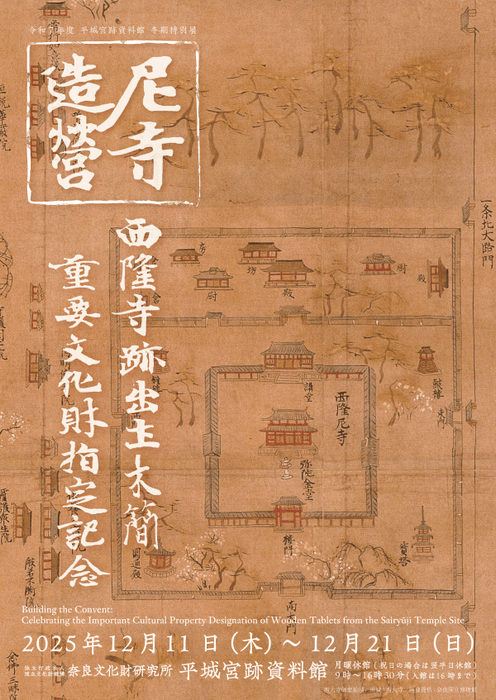 令和7年度 平城宮跡資料館 冬期特別展
尼寺
造営
西隆寺跡出土木簡
重要文化財指定記念
一条北大路門
房
坊
厨
殿
厨
殿
講堂
西隆尼寺
弥陀金堂
鐘楼
楼門
寶塔
南門
Building the Convent:
Celebrating the Important Cultural Property Designation of Wooden Tablets from the Sairyūji Temple Site
2025年12月11日(木)〜12月21日(日)
独立行政法人
国立文化財機構
奈良文化財研究所 平城宮跡資料館
月曜休館(祝日の場合は翌平日休館)
9時〜16時30分(入館は16時まで)